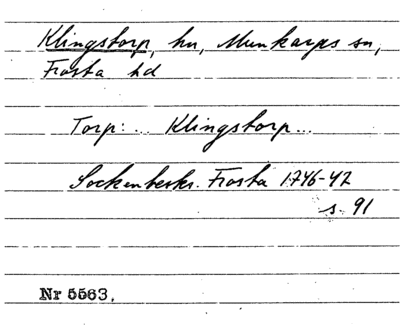 Klingstorp, hn, Munkarps sn,
Frosta hd
Torp: ... Klingstorp ...
Sockenbeskr. Frosta 1746-47
s. 91
Nr 5563.